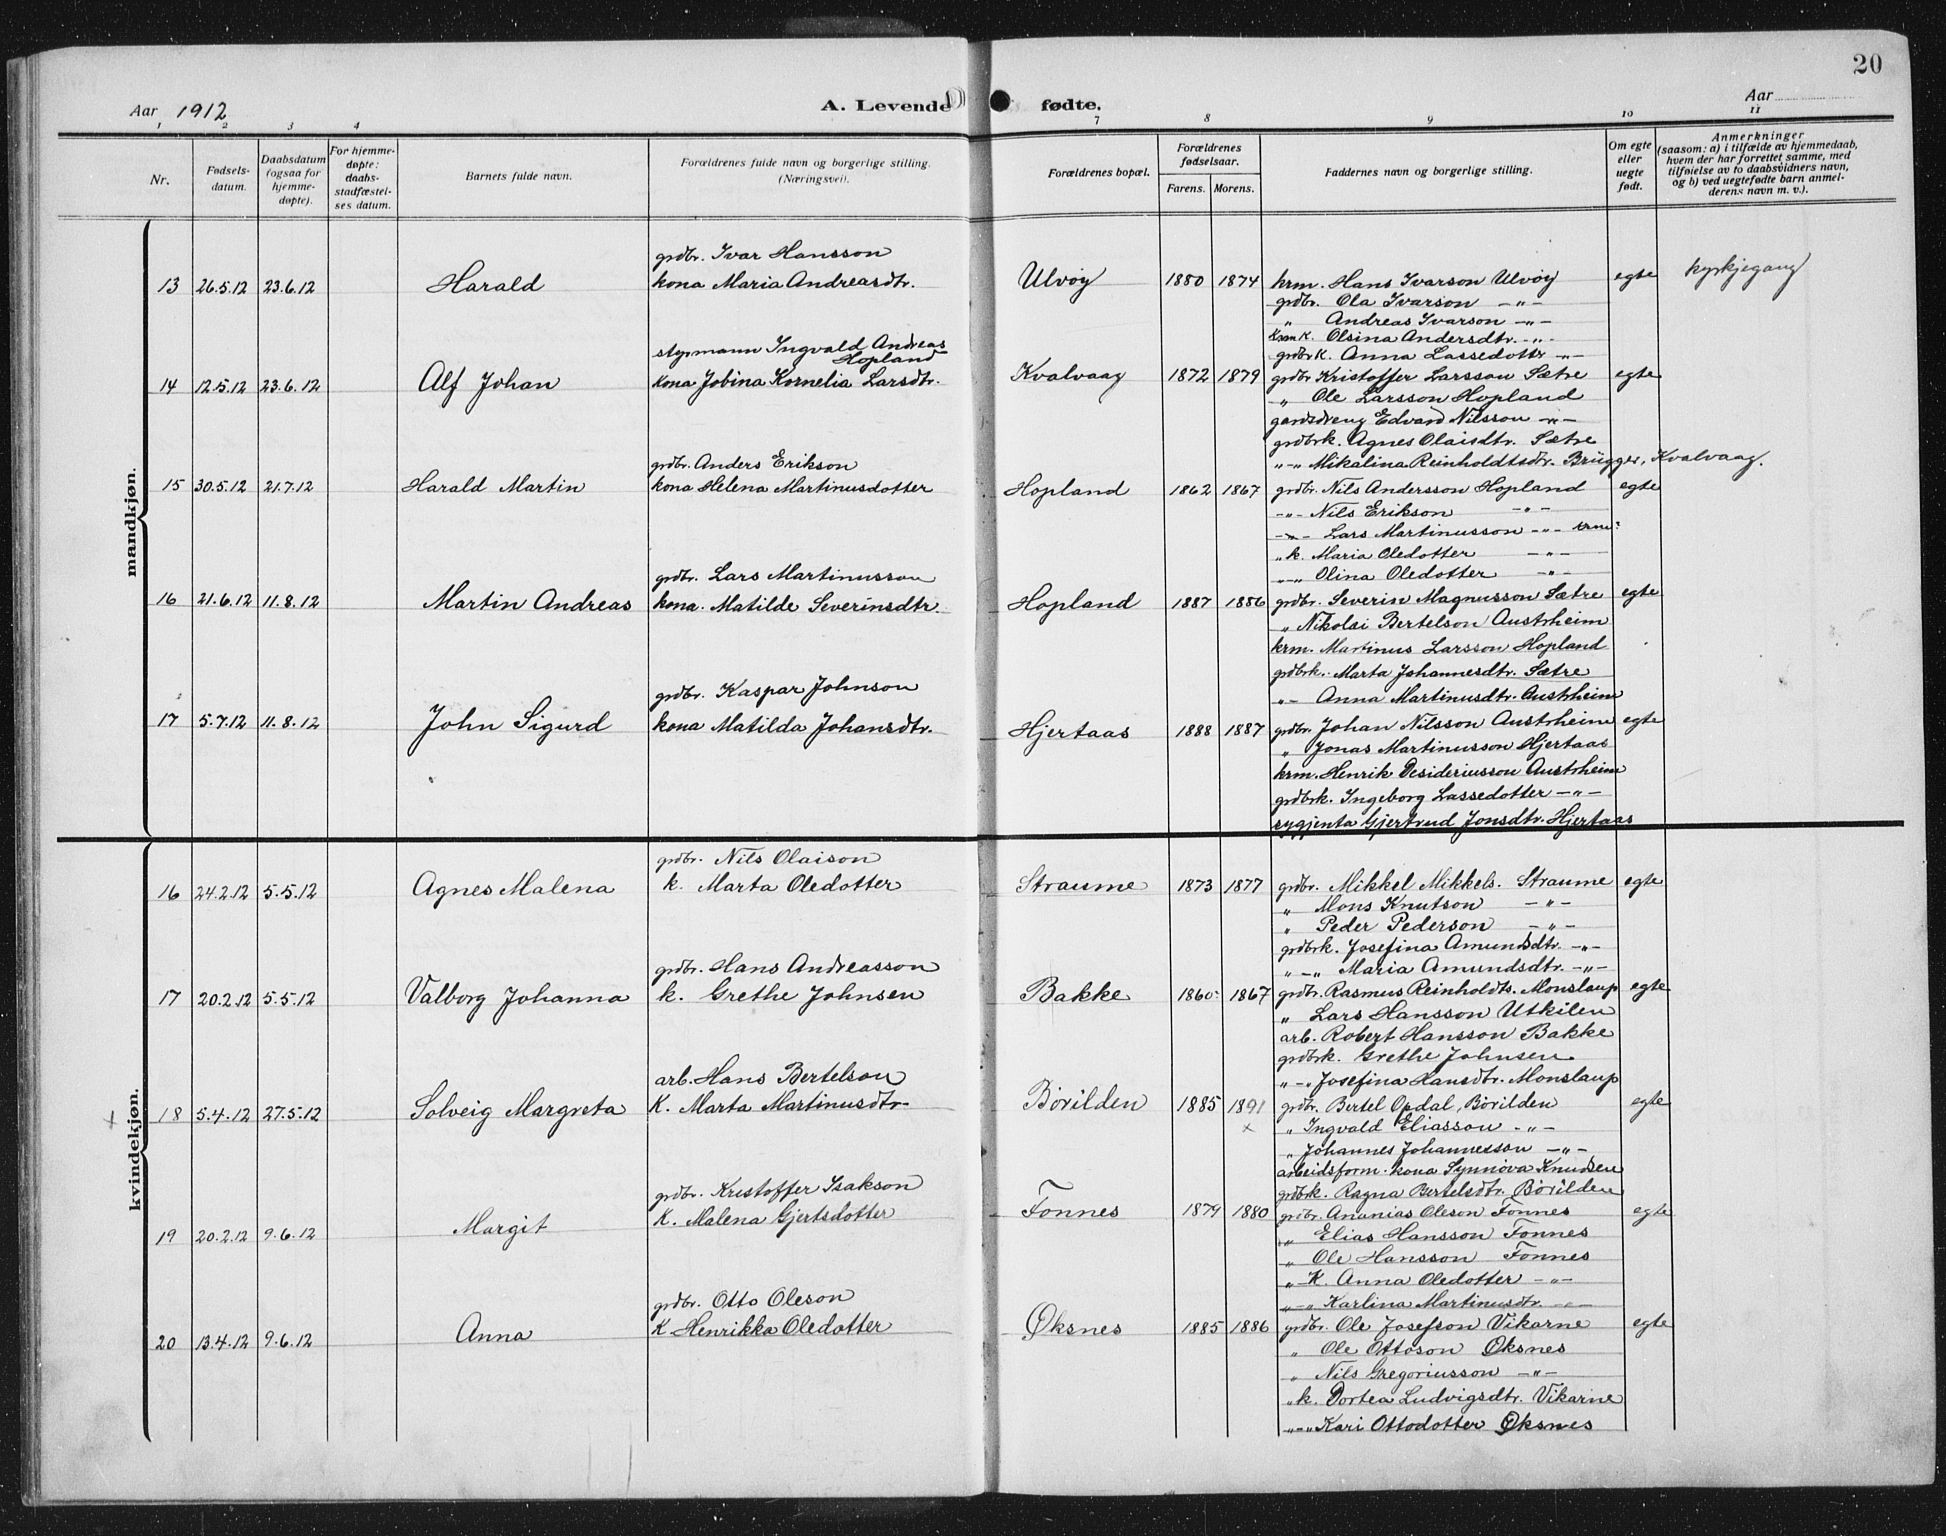 20
Aar 1912
A. Levende fødte.
Aar
1 2 3 4 7 8 9 10 11
Nr.
Fødsels-
datum.
Daabsdatum
(ogsaa for
hjemme-
døpte).
For hjemme-
døpte:
daabs-
stadfæstel-
ses datum.
Barnets fulde navn.
Forældrenes fulde navn og borgerlige stilling.
(Næringsvei).
Forældrenes bopæl.
Forældrenes
fødselsaar.
Farens. Morens.
Faddernes navn og borgerlige stilling.
Om egte
eller
uegte
født.
Anmerkninger
(saasom: a) i tilfælde av hjemmedaab,
hvem der har forrettet samme, med
tilføielse av to daabsvidners navn,
og b) ved uegtefødte barn anmel-
derens navn m. v.).
mandkjøn.
grdbr. Ivar Hansson
13 26.5.12 23.6.12 Harald kona Maria Andreasdtr. Ulvøy 1880 1874 krm. Hans Ivarson Ulvøy egte kyrkjegang
grdbr. Ola Ivarson -"-
" Andreas Ivarson -"-
Krm K. Olsina Andersdtr. -"-
grdbrk. Anna Lassedotter -"-
styrmann Ingvald Andreas
Hopland
14 12.5.12 23.6.12 Alf Johan kona Jobina Kornelia Larsdtr. Kvalvaag 1872 1879 grdbr Kristoffer Larsson Sætre egte
" Ole Larsson Hopland
gardsdreng Edvard Nilsson -"-
grdbrk. Agnes Olaisdtr. Sætre
"-" Mikalina Reinholdtsdtr. Brügger, Kvalvaag.
grdbr. Anders Erikson
15 30.5.12 21.7.12 Harald Martin kona Helena Martinusdotter Hopland 1862 1867 grdbr. Nils Andersson Hopland egte
-"- Nils Erikson -"-
-"- Lars Martinusson -"- krm:
"k. Maria Oledotter -"-
"-" Olina Oledotter -"-
grdbr. Lars Martinusson
16 21.6.12 11.8.12 Martin Andreas kona. Matilde Severinsdtr. Hopland 1887 1886 grdbr. Severin Magnusson Sætre egte
" Nikolai Bertelson Austrheim
krm. Martinus Larsson Hopland
grdbrk. Marta Johannesdtr. Sætre
"- Anna Martinusdtr. Austrheim
grdbr. Kaspar Johnson
17 5.7.12 11.8.12 John Sigurd kona Matilda Johansdtr. Hjertaas 1888 1887 grdbr. Johan Nilsson Austrheim egte
" Jonas Martinusson Hjertaas
krm. Henrik Desideriusson Austrheim
grdbrk. Ingeborg Lassedotter -"-
sygjenta Gjertrud Jonsdtr. Hjertaas
kvindekjøn.
grdbr. Nils Olaison
16 24.2.12 5.5.12 Agnes Malena k. Marta Oledotter Straume 1873 1877 grdbr. Mikkel Mikkels. Straume egte
" Mons Knutson -"-
" Peder Pederson -"-
grdbrk. Josefina Amundsdtr. -"-
"-" Maria Amundsdtr. -"-
grdbr. Hans Andreasson
17 20.2.12 5.5.12 Valborg Johanna k. Grethe Johnsen Bakke 1860 1867 grdbr. Rasmus Reinholdts. Monslaup egte
" Lars Hansson Utkilen
arb. Robert Hansson Bakke
grdbrk. Grethe Johnsen
"-" Josefina Hansdtr. Monslaup
arb. Hans Bertelson
x 18 5.4.12 27.5.12 Solveig Margreta K. Marta Martinusdtr Børilden 1885 1891 grdbr. Bertel Opdal, Børilden egte
x " Ingvald Eliasson -"-
" Johannes Johannesson -"-
arbeidsform. kona Synnøva Knudsen
grdbrk. Ragna Bertelsdtr. Børilden
grdbr. Kristoffer Isakson
19 20.2.12 9.6.12 Margit K. Malena Gjertsdotter Fonnes 1879 1880 grdbr. Ananias Oleson Fonnes egte
" Elias Hansson Fonnes
" Ole Hansson Fonnes
"-K. Anna Oledotter -"-
"-" Karlina Martinusdtr. -"-
grdbr. Otto Oleson
20 13.4.12 9.6.12 Anna K Henrikka Oledotter Øksnes 1885 1886 grdbr. Ole Josefson Vikarne egte
" Ole Ottoson Øksnes
" Nils Gregoriusson -"-
"k. Dortea Ludvigsdtr. Vikarne
"-" Kari Ottodotter Øksnes